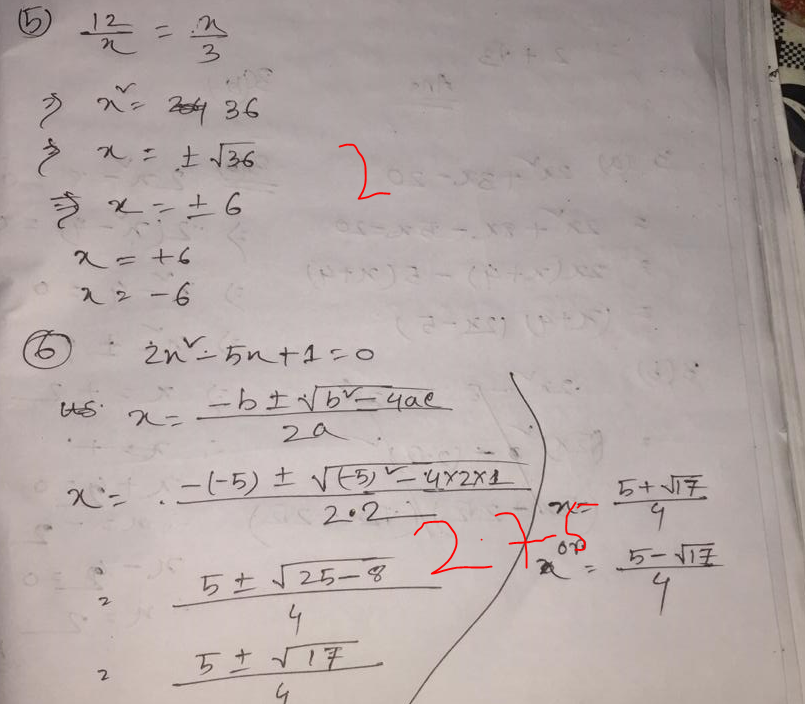 (5) 12/x = x/3
⇒ x² = 36
⇒ x = ±√36
2
⇒ x = ± 6
x = +6
x = -6
(6) 2x² - 5x + 1 = 0
x = (-b ± √(b² - 4ac))/2a
x = (-(-5) ± √((-5)² - 4×2×1))/2·2
= (5 ± √(25-8))/4
= (5 ± √17)/4
2.75
x = (5+√17)/4
or
x = (5-√17)/4